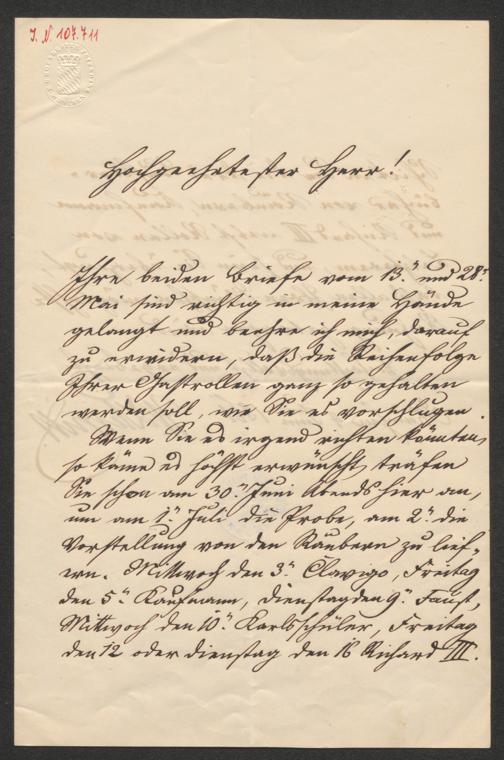 J. N. 107.711
Hochgeehrtester Herr!
Ihre beiden Briefe vom 13.ⁿ und 28ⁿ
Mai sind richtig in meine Hände
gelangt und beehre ich mich, darauf
zu erwidern, daß die Reihenfolge
Ihrer Gastrollen ganz so gehalten
werden soll, wie Sie es vorschlugen.
Wenn Sie es irgend richten könnten,
so käme es höchst erwünscht, träfen
Sie schon am 30ⁿ Juni Abends hier an,
um am 1ⁿ Juli die Probe, am 2ⁿ die
Vorstellung von den Räubern zu lief-
ern. Mittwoch den 3ⁿ Clavigo, Freitag
den 5ⁿ Kaufmann, Dienstag den 9ⁿ Faust,
Mittwoch den 10ⁿ Karlsschüler, Freitag
den 12 oder Dienstag den 16 Richard III.